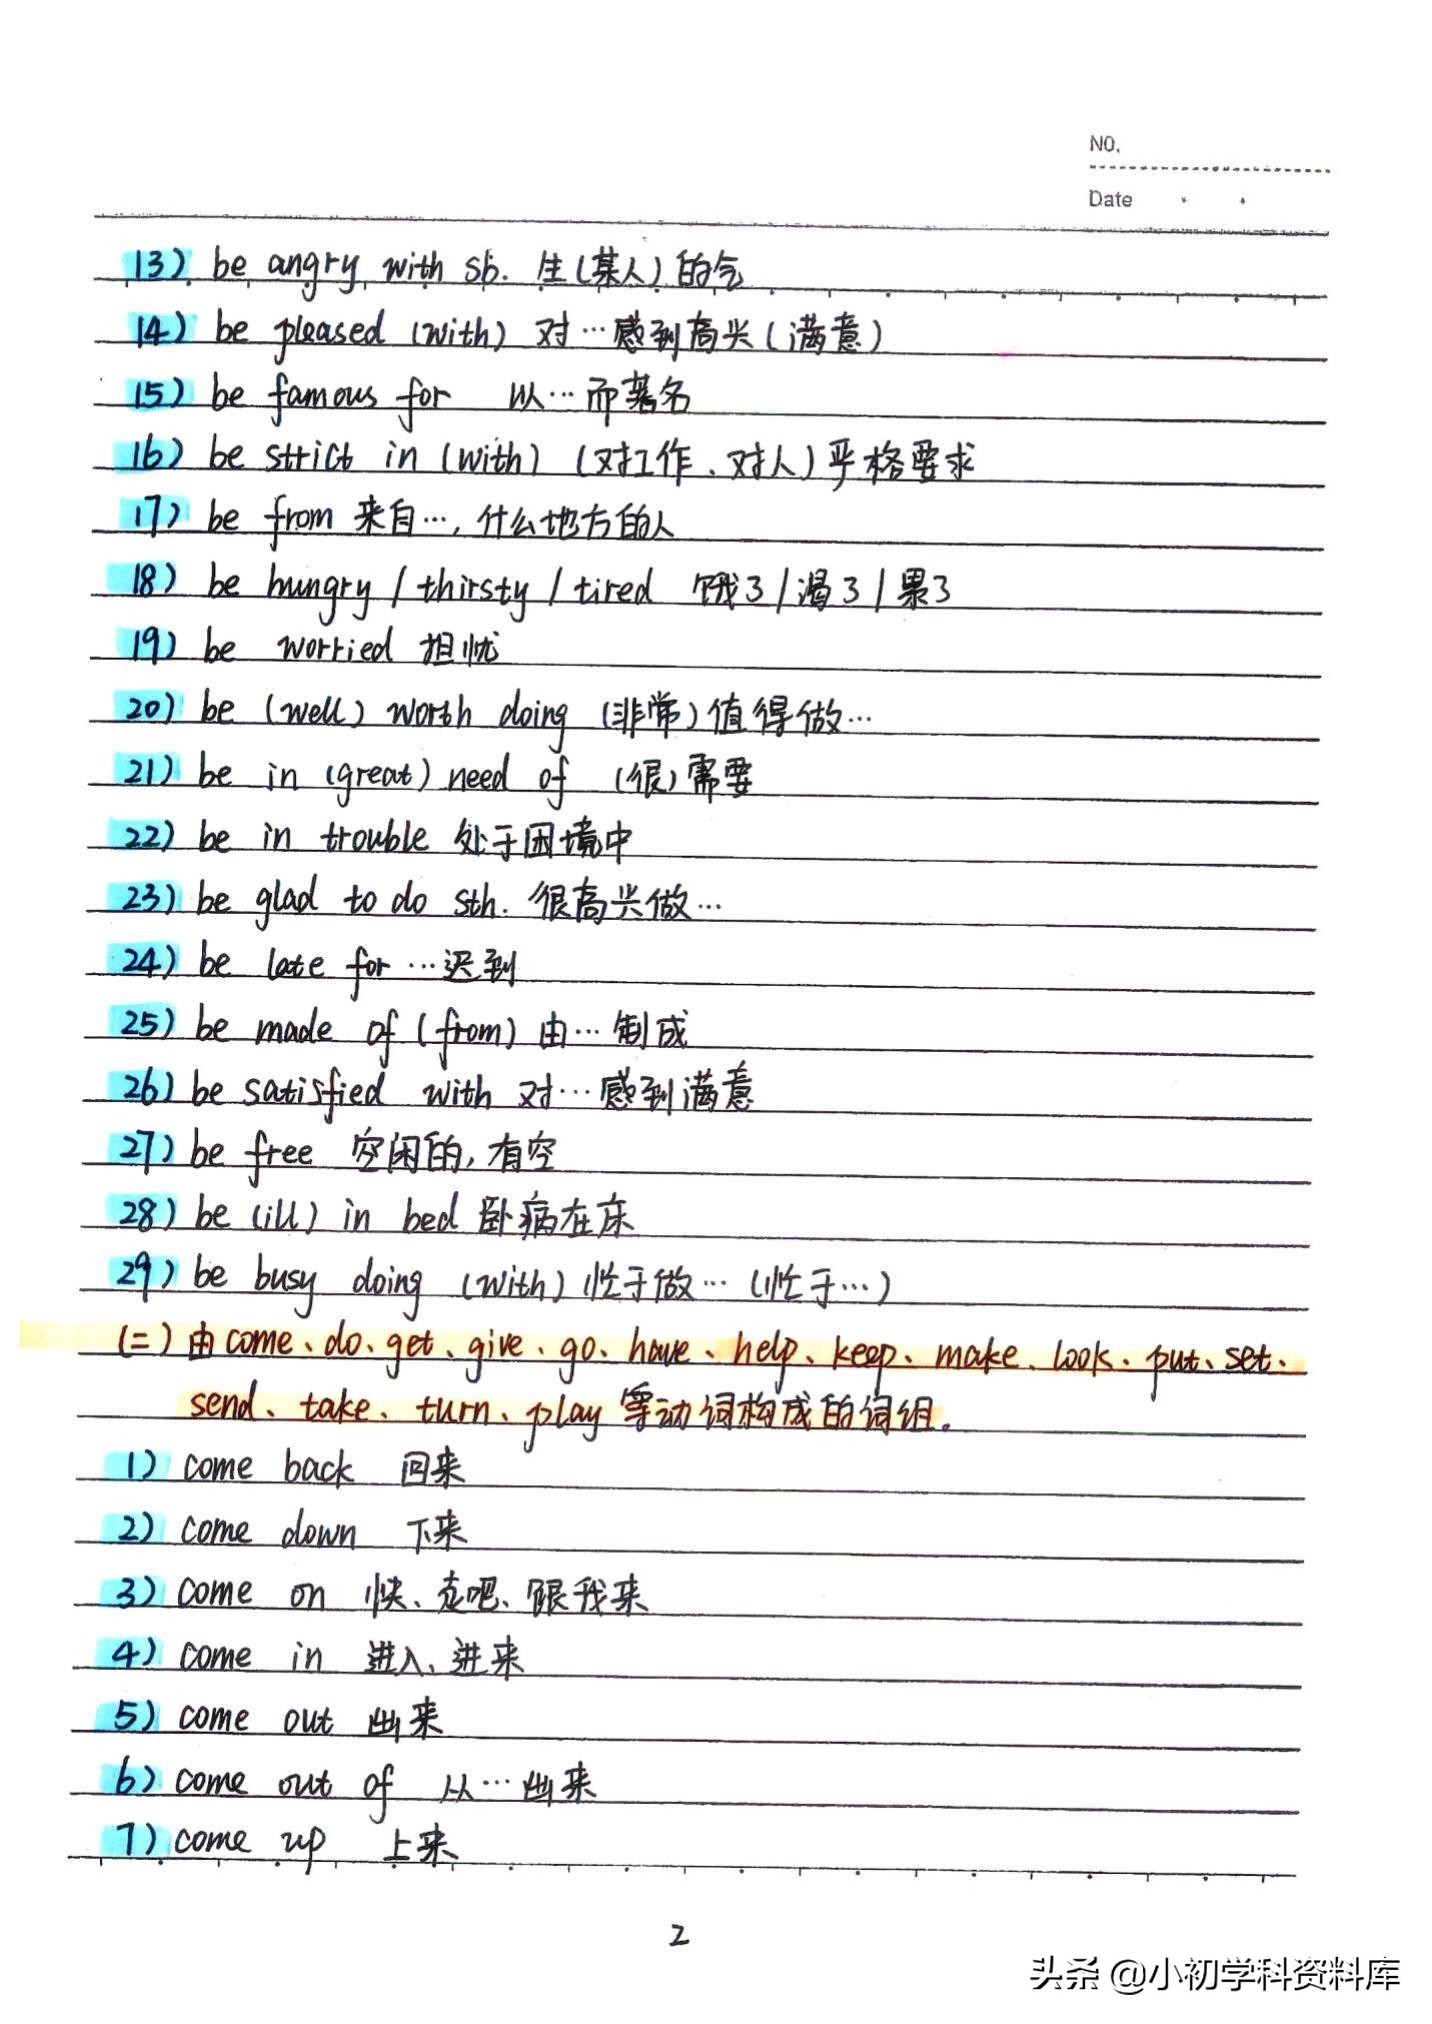 NO.
Date
13) be angry with sb. 生(某人)的气
14) be pleased (with) 对…感到高兴(满意)
15) be famous for 以…而著名
16) be strict in (with) (对工作、对人)严格要求
17) be from 来自…, 什么地方的人
18) be hungry / thirsty / tired 饿了/渴了/累了
19) be worried 担忧
20) be (well) worth doing (非常)值得做…
21) be in (great) need of (很)需要
22) be in trouble 处于困境中
23) be glad to do sth. 很高兴做…
24) be late for …迟到
25) be made of (from) 由…制成
26) be satisfied with 对…感到满意
27) be free 空闲的, 有空
28) be (ill) in bed 卧病在床
29) be busy doing (with) 忙于做… (忙于…)
(二) 由come、do、get、give、go、have、help、keep、make、look、put、set、
send、take、turn、play等动词构成的词组。
1) come back 回来
2) come down 下来
3) come on 快、走吧、跟我来
4) come in 进入、进来
5) come out 出来
6) come out of 从…出来
7) come up 上来
2
头条 @小初学科资料库